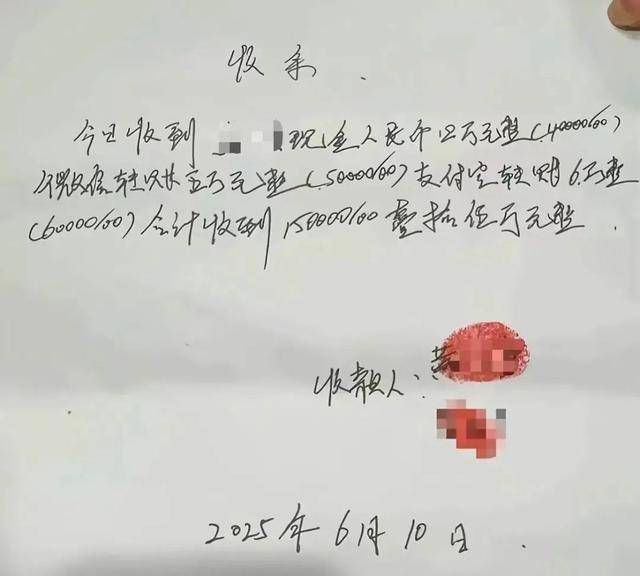 收条
今日收到现金人民币四万元整(40000.00)
微信转账五万元整(50000.00)支付宝转账6万整
(60000.00)合计收到150000.00壹拾伍万元整.
收款人:黄
2025年6月10日.